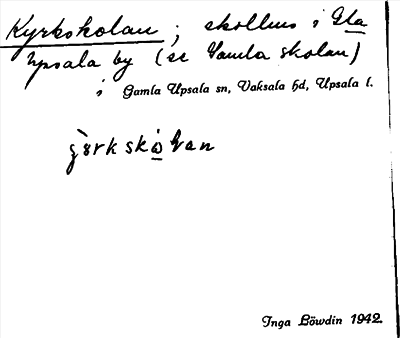 Kyrkskolan; skolhus i Gla
Upsala by (se Gamla skolan)
i Gamla Upsala sn, Vaksala hd, Upsala l.
Inga Löwdin 1942.